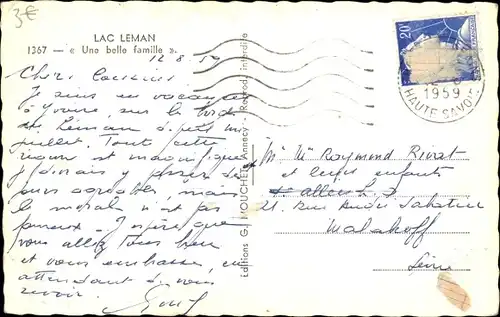 3€
LAC LEMAN
1367 — « Une belle famille ».
12.8.59
Chers cousins
Je suis en vacances
à Yvoire, sur le bord
du Léman
Toute cette
région est magnifique
jours agréables, mais
le moral n'est pas
fameux. J'espère que
vous allez tous bien
et vous embrasse, en
attendant de vous
revoir.
Editions G. MOUCHET, Annecy - Reprod. interdite
20F
1959
HAUTE SAVOIE
Mr Mme Raymond Rivat
et leurs enfants
21 Rue
Malakoff
Seine